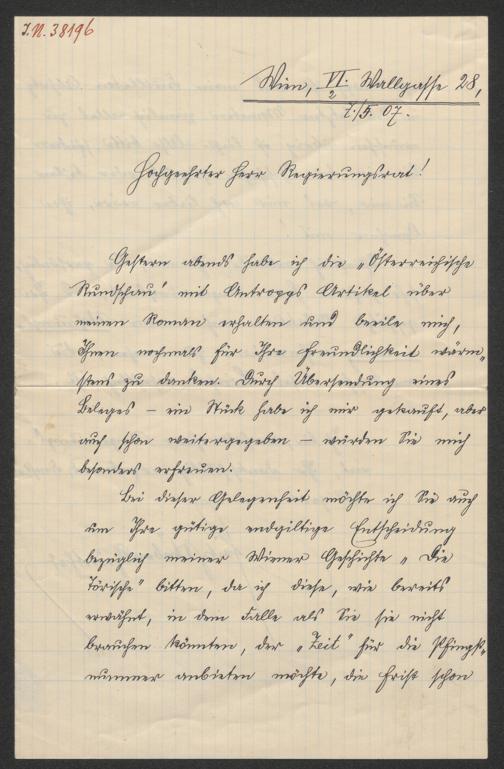 I.N. 38196
Wien, VI. Wallgasse 28,
2
7./5. 07.
Hochgeehrter Herr Regierungsrat!
Gestern abends habe ich die „Österreichische
Rundschau" mit Antropps Artikel über
meinen Roman erhalten und beeile mich,
Ihnen nochmals für Ihre Freundlichkeit wärm-
stens zu danken. Durch Übersendung eines
Beleges – ein Stück habe ich mir gekauft, aber
auch schon weitergegeben – würden Sie mich
besonders erfreuen.
Bei dieser Gelegenheit möchte ich Sie auch
um Ihre gütige endgiltige Entscheidung
bezüglich meiner Wiener Geschichte „Die
Törische" bitten, da ich diese, wie bereits
erwähnt, in dem Falle als Sie sie nicht
brauchen könnten, der „Zeit" für die Pfingst-
nummer anbieten möchte, die Frist schon